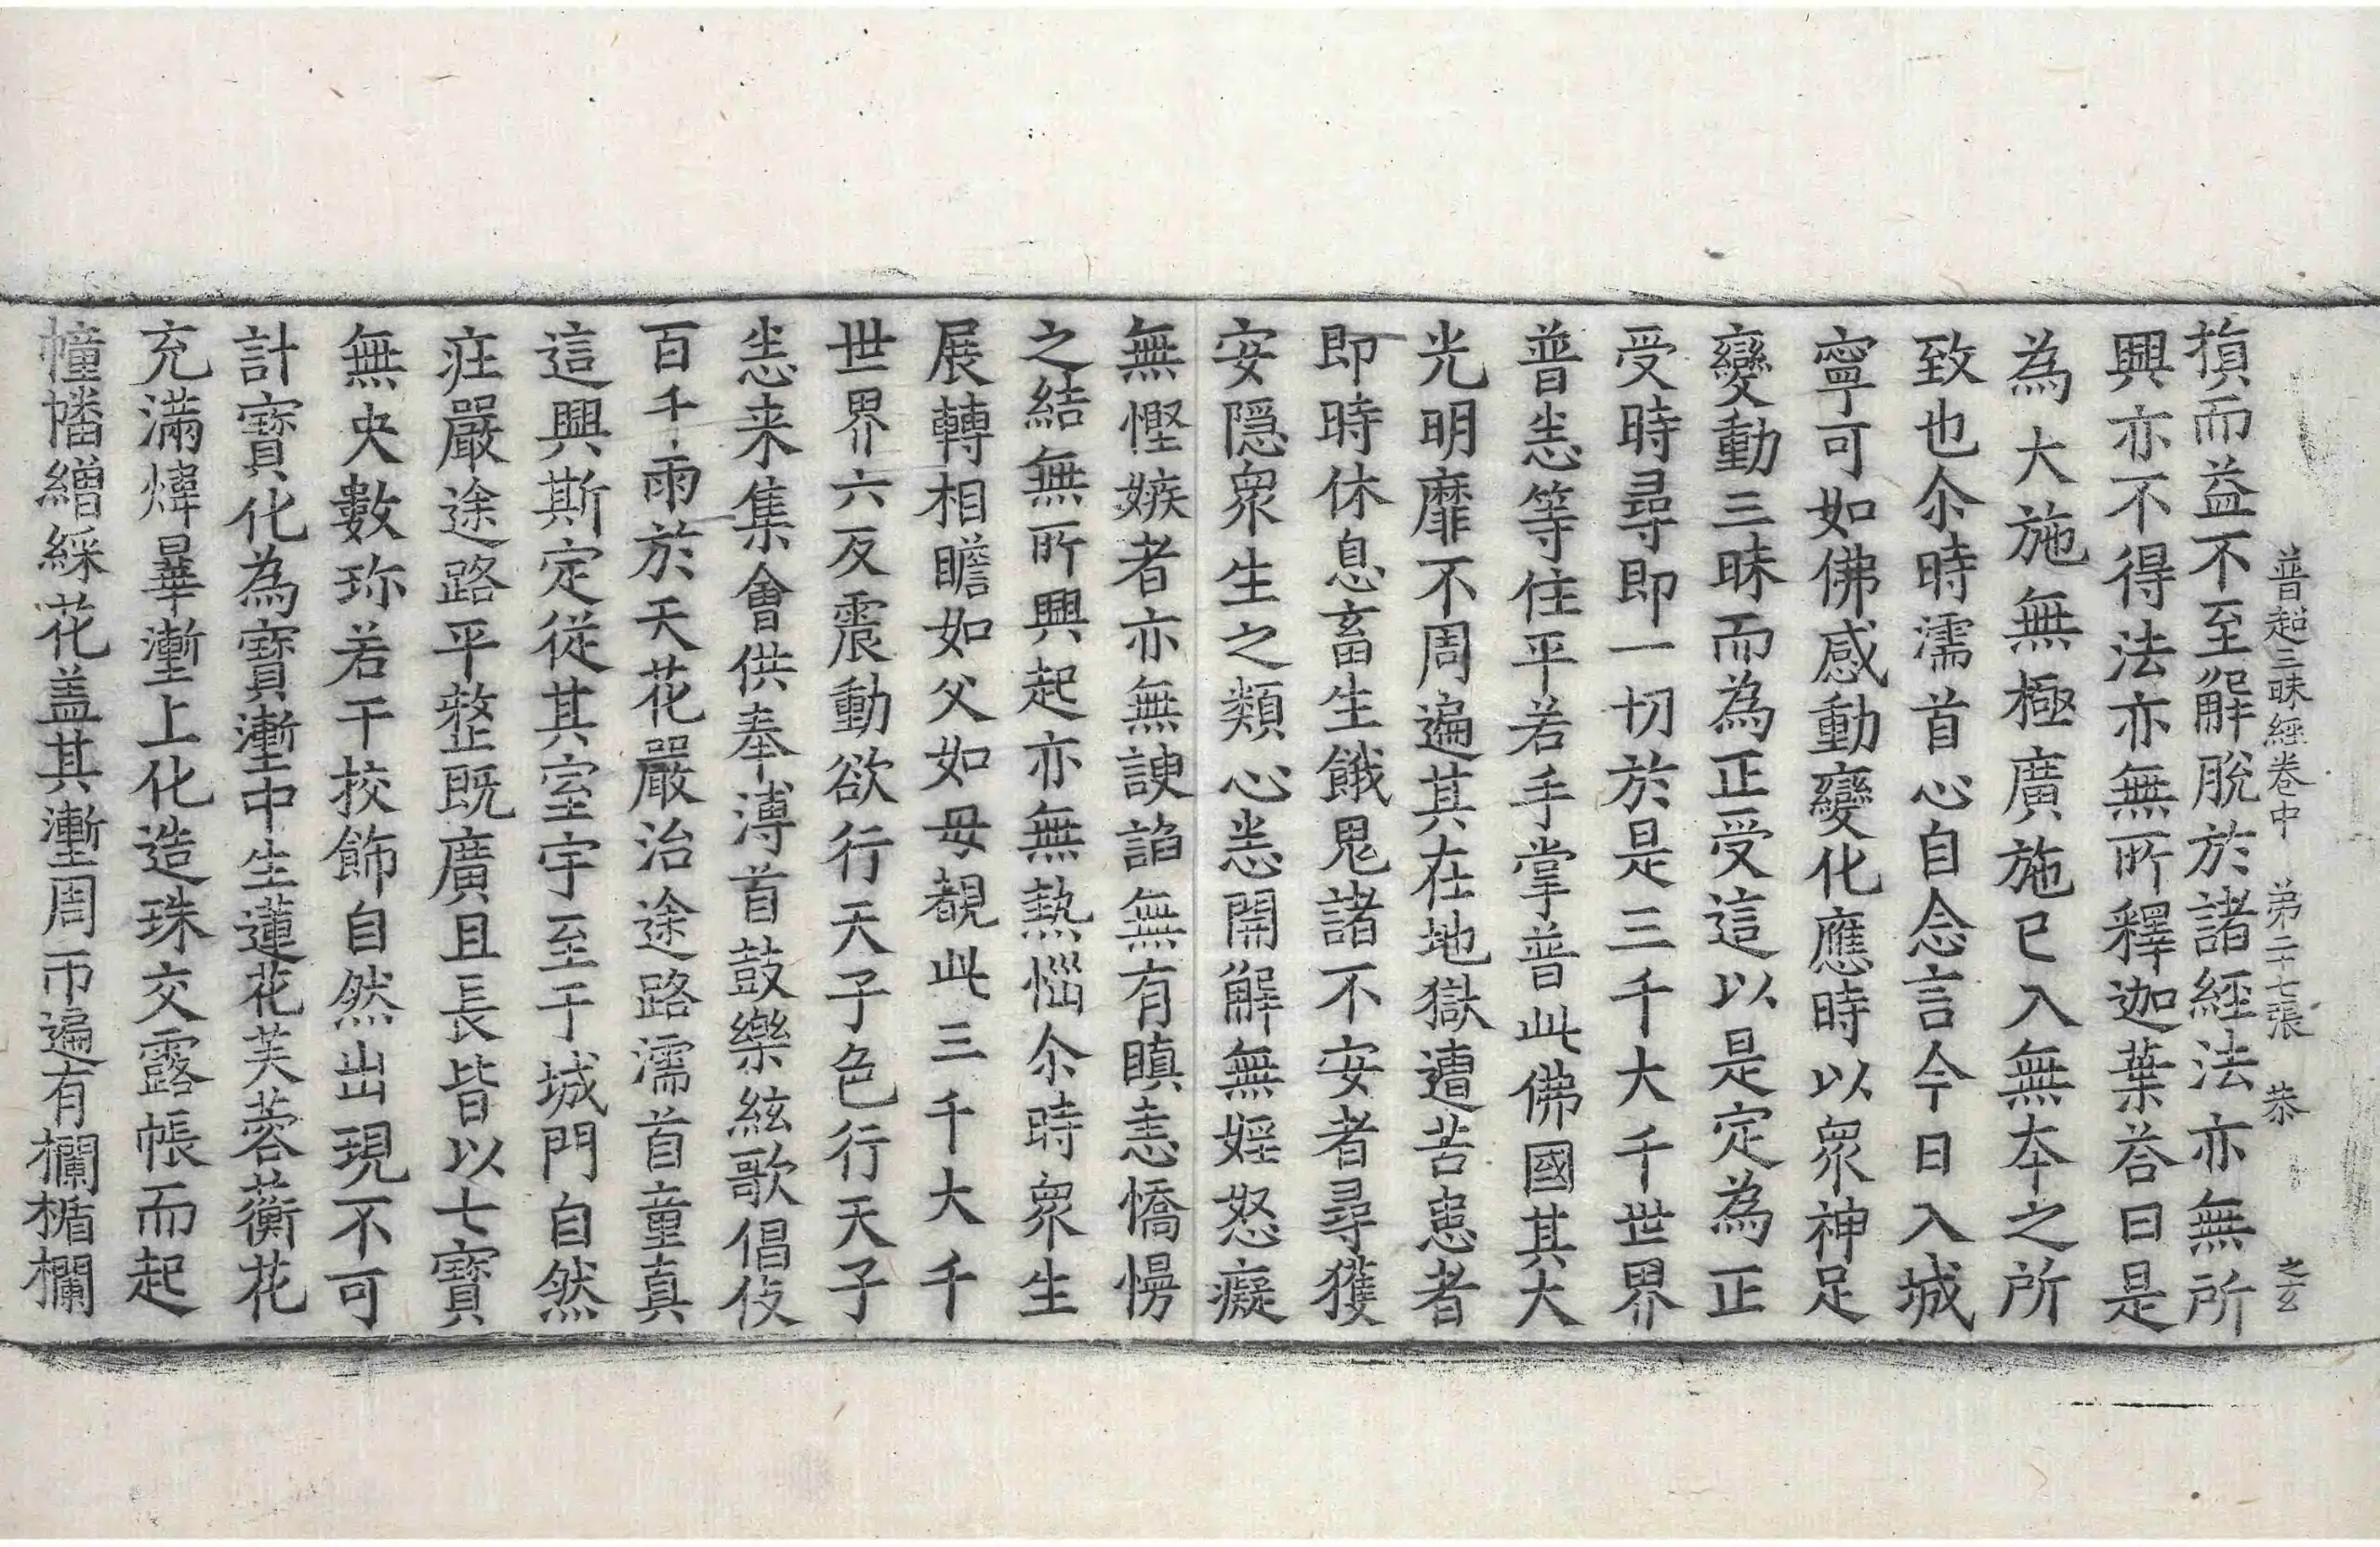 普超三昧經卷中 弟二十七張 恭 之玄
損而益不至觧脫於諸經法亦無所
興亦不得法亦無所釋迦葉荅曰是
為大施無極廣施已入無夲之所
致也尒時濡首心自念言今日入城
寧可如佛感動變化應時以衆神足
變動三昧而為正受這以是定為正
受時尋即一切於是三千大千世界
普悉等住平若手掌普此佛國其大
光明靡不周遍其在地獄遭苦患者
即時休息畜生餓鬼諸不安者尋獲
安隱衆生之類心悉開觧無婬怒癡
無慳嫉者亦無諛諂無有瞋恚憍慢
之結無所興起亦無熱惱尒時衆生
展轉相瞻如父如母覩此三千大千
世界六反震動欲行天子色行天子
悉来集會供奉溥首鼓樂絃歌倡伎
百千雨於天花嚴治途路濡首童真
這興斯定從其室宇至于城門自然
莊嚴途路平整既廣且長皆以七寶
無央數珎若干挍飾自然出現不可
計寶化為寶壍中生蓮花芙蓉蘅花
充滿煒曅壍上化造珠交露帳而起
幢幡繒綵花盖其壍周帀遍有欄楯欄